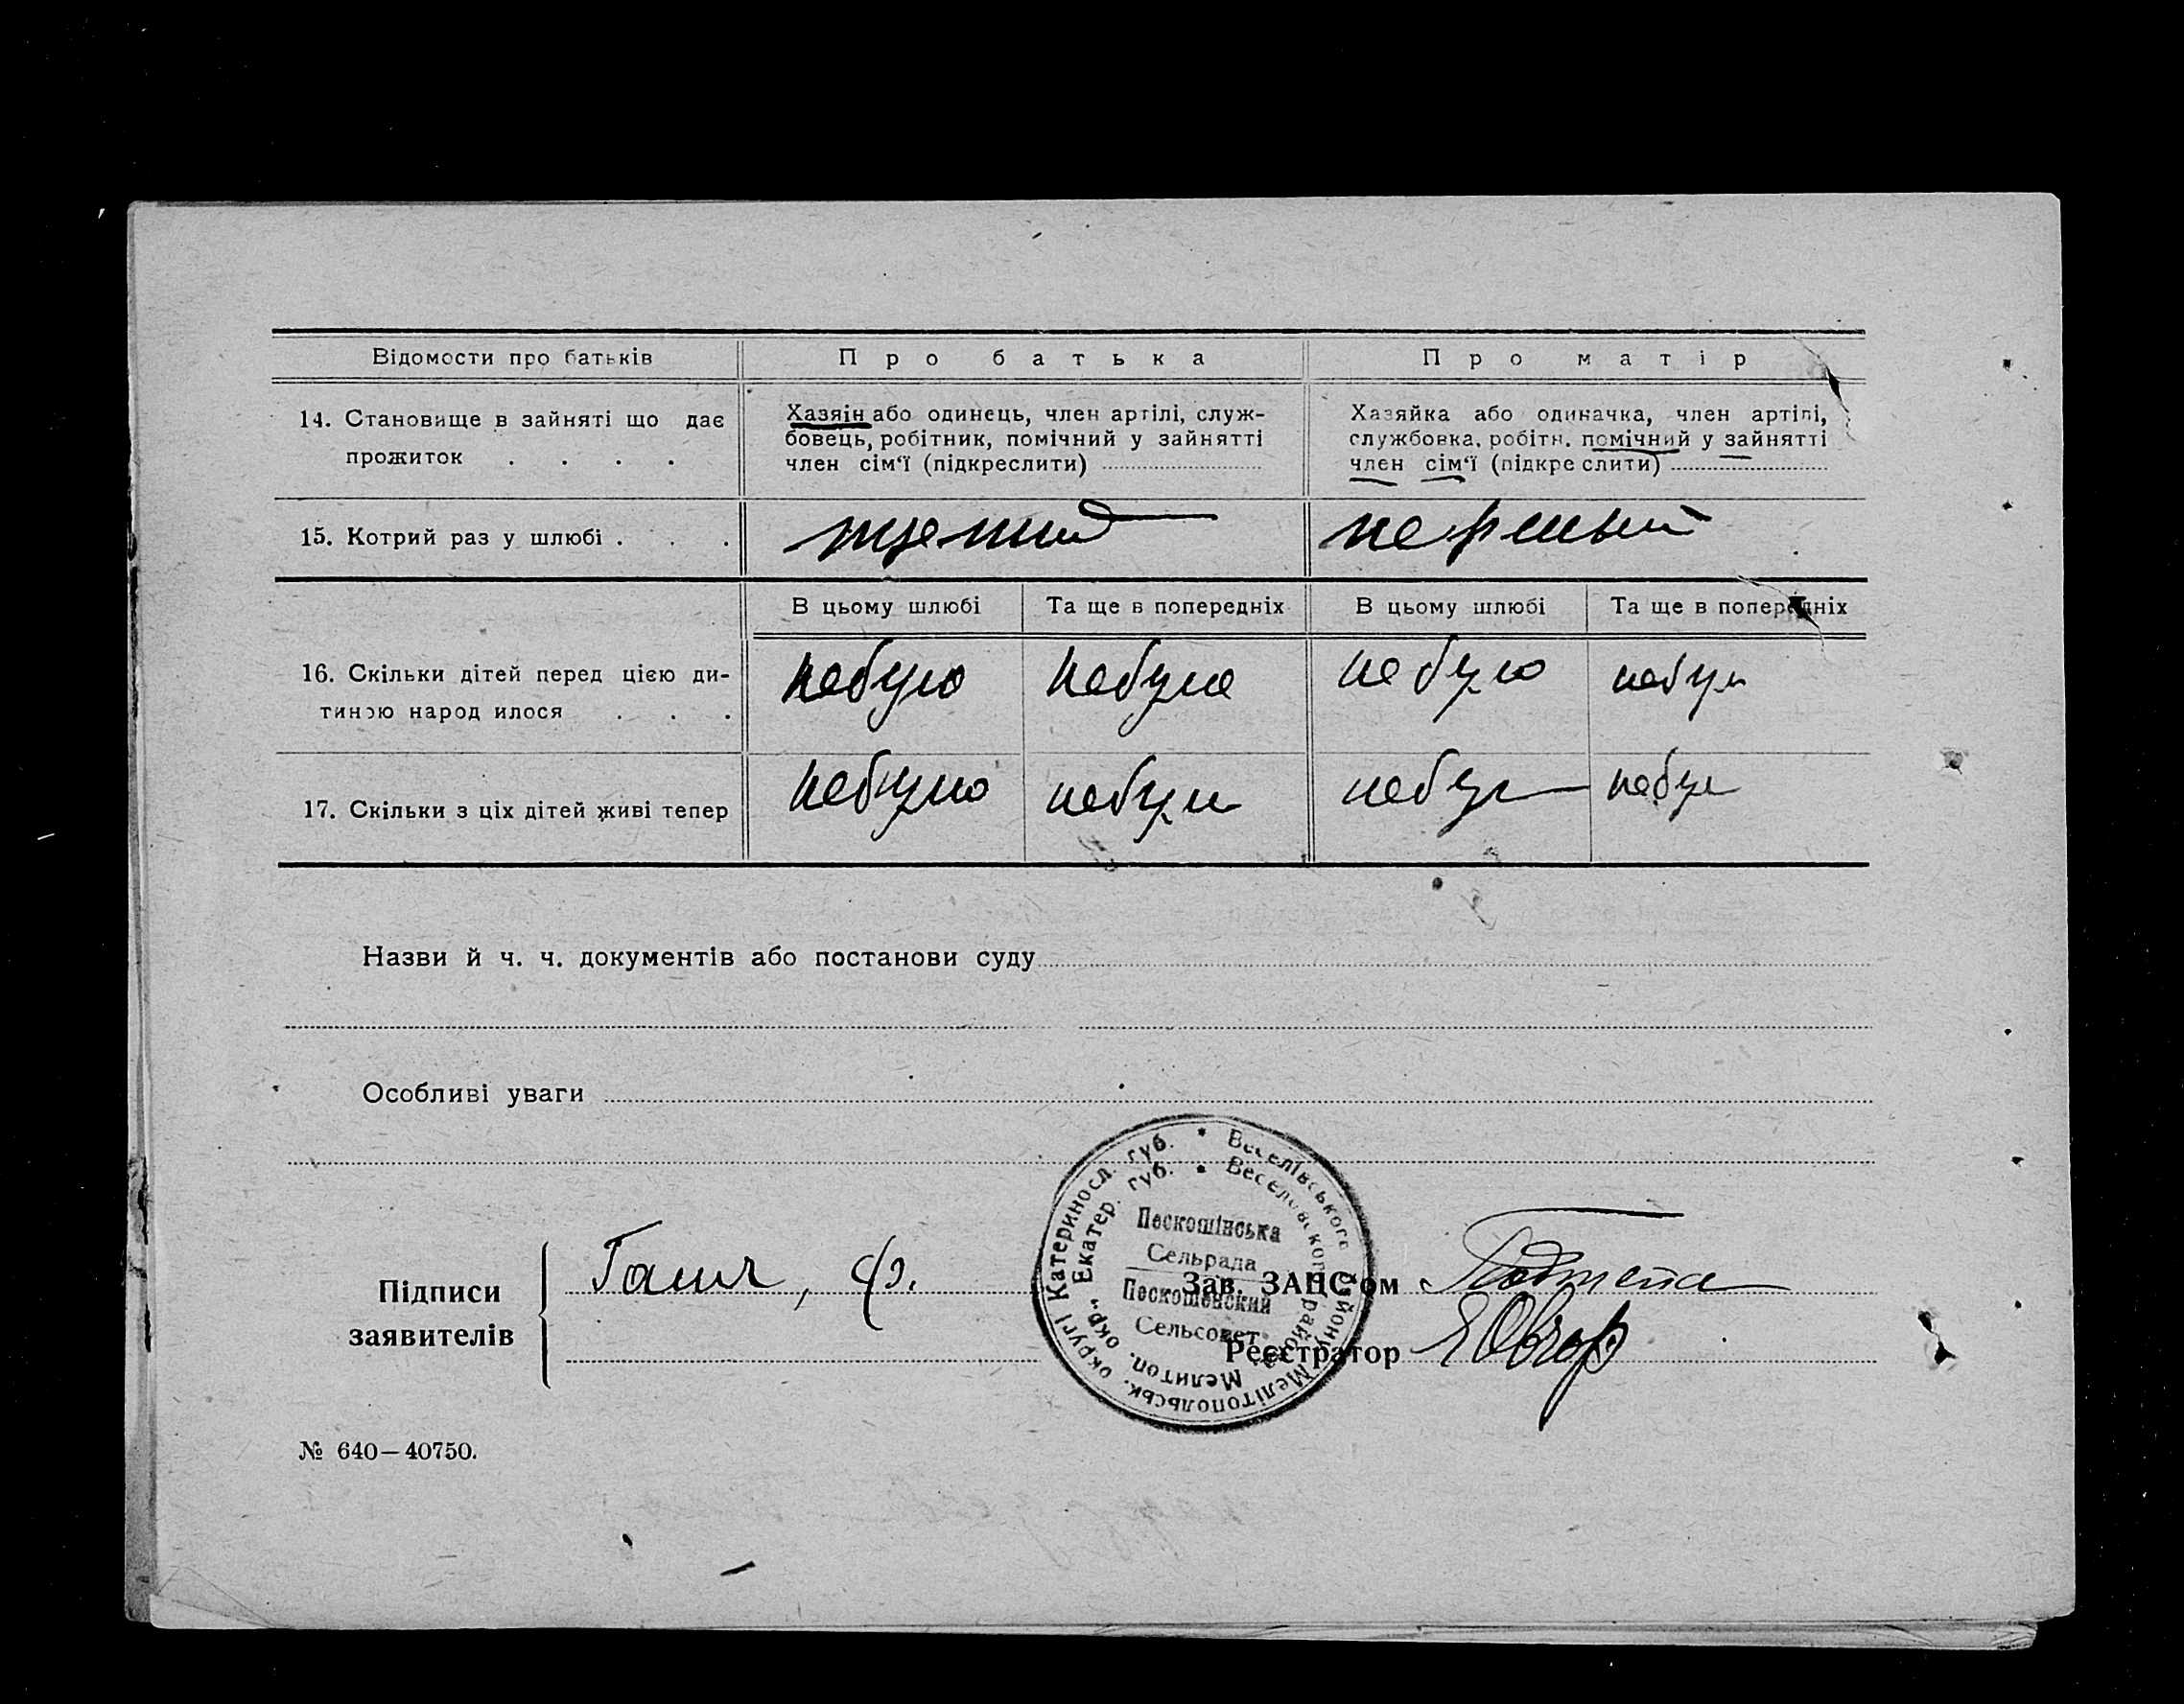 Відомости про батьків
Про батька
Про матір
14. Становище в зайняті що дає
прожиток . . . .
Хазяін або одинець, член артілі, служ-
бовець, робітник, помічний у зайнятті
член сім'ї (підкреслити)
Хазяйка або одиначка, член артілі,
службовка, робітн. помічний у зайнятті
член сім'ї (підкре слити)
15. Котрий раз у шлюбі . . .
першый
В цьому шлюбі
Та ще в попередніх
В цьому шлюбі
Та ще в попередніх
16. Скільки дітей перед цією ди-
тиною народ илося . . .
небуло
небуло
небуло
небул
17. Скільки з ціх дітей живі тепер
небуло
небули
небул
небул
Назви й ч. ч. документів або постанови суду
Особливі уваги
Підписи
заявителів
Зав. ЗАЦС'ом
Реєстратор
Мелітопольськ. округі Катериносл. губ. * Веселівського району
Мелитоп. окр. Екатер. губ. * Веселовского район
Пескошінська
Сельрада
Пескошенский
Сельсовет
№ 640—40750.